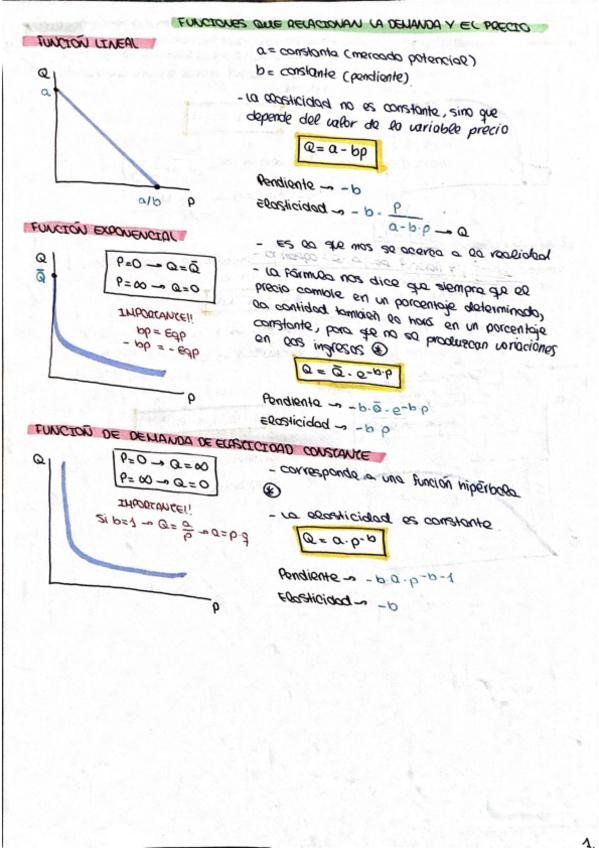 FUNCIONES QUE RELACIONAN LA DEMANDA Y EL PRECIO
FUNCIÓN LINEAL
a = constante (mercado potencial)
b = constante (pendiente)
- La elasticidad no es constante, sino que
depende del valor de la variable precio
Q = a - bp
Pendiente → -b
Elasticidad → -b · p / a-b·p → Q
Q
a
a/b
P
FUNCIÓN EXPONENCIAL
Q
Q̄
P=0 → Q=Q̄
P=∞ → Q=0
IMPORTANCE!!
bp = Eqp
- bp = - Eqp
P
- Es la que más se acerca a la realidad
- La fórmula nos dice que siempre que el
precio cambie en un porcentaje determinado,
la cantidad también lo hará en un porcentaje
constante, para que no se produzcan variaciones
en los ingresos *
Q = Q̄ · e^-b·p
Pendiente → -b·Q̄·e^-b·p
Elasticidad → -b p
FUNCIÓN DE DEMANDA DE ELASTICIDAD CONSTANTE
Q
P=0 → Q=∞
P=∞ → Q=0
IMPORTANCE!!
Si b=1 → Q = a/p → a=p·q
P
- Corresponde a una función hipérbola
*
- La elasticidad es constante
Q = a·p^-b
Pendiente → -b·a·p^-b-1
Elasticidad → -b
1